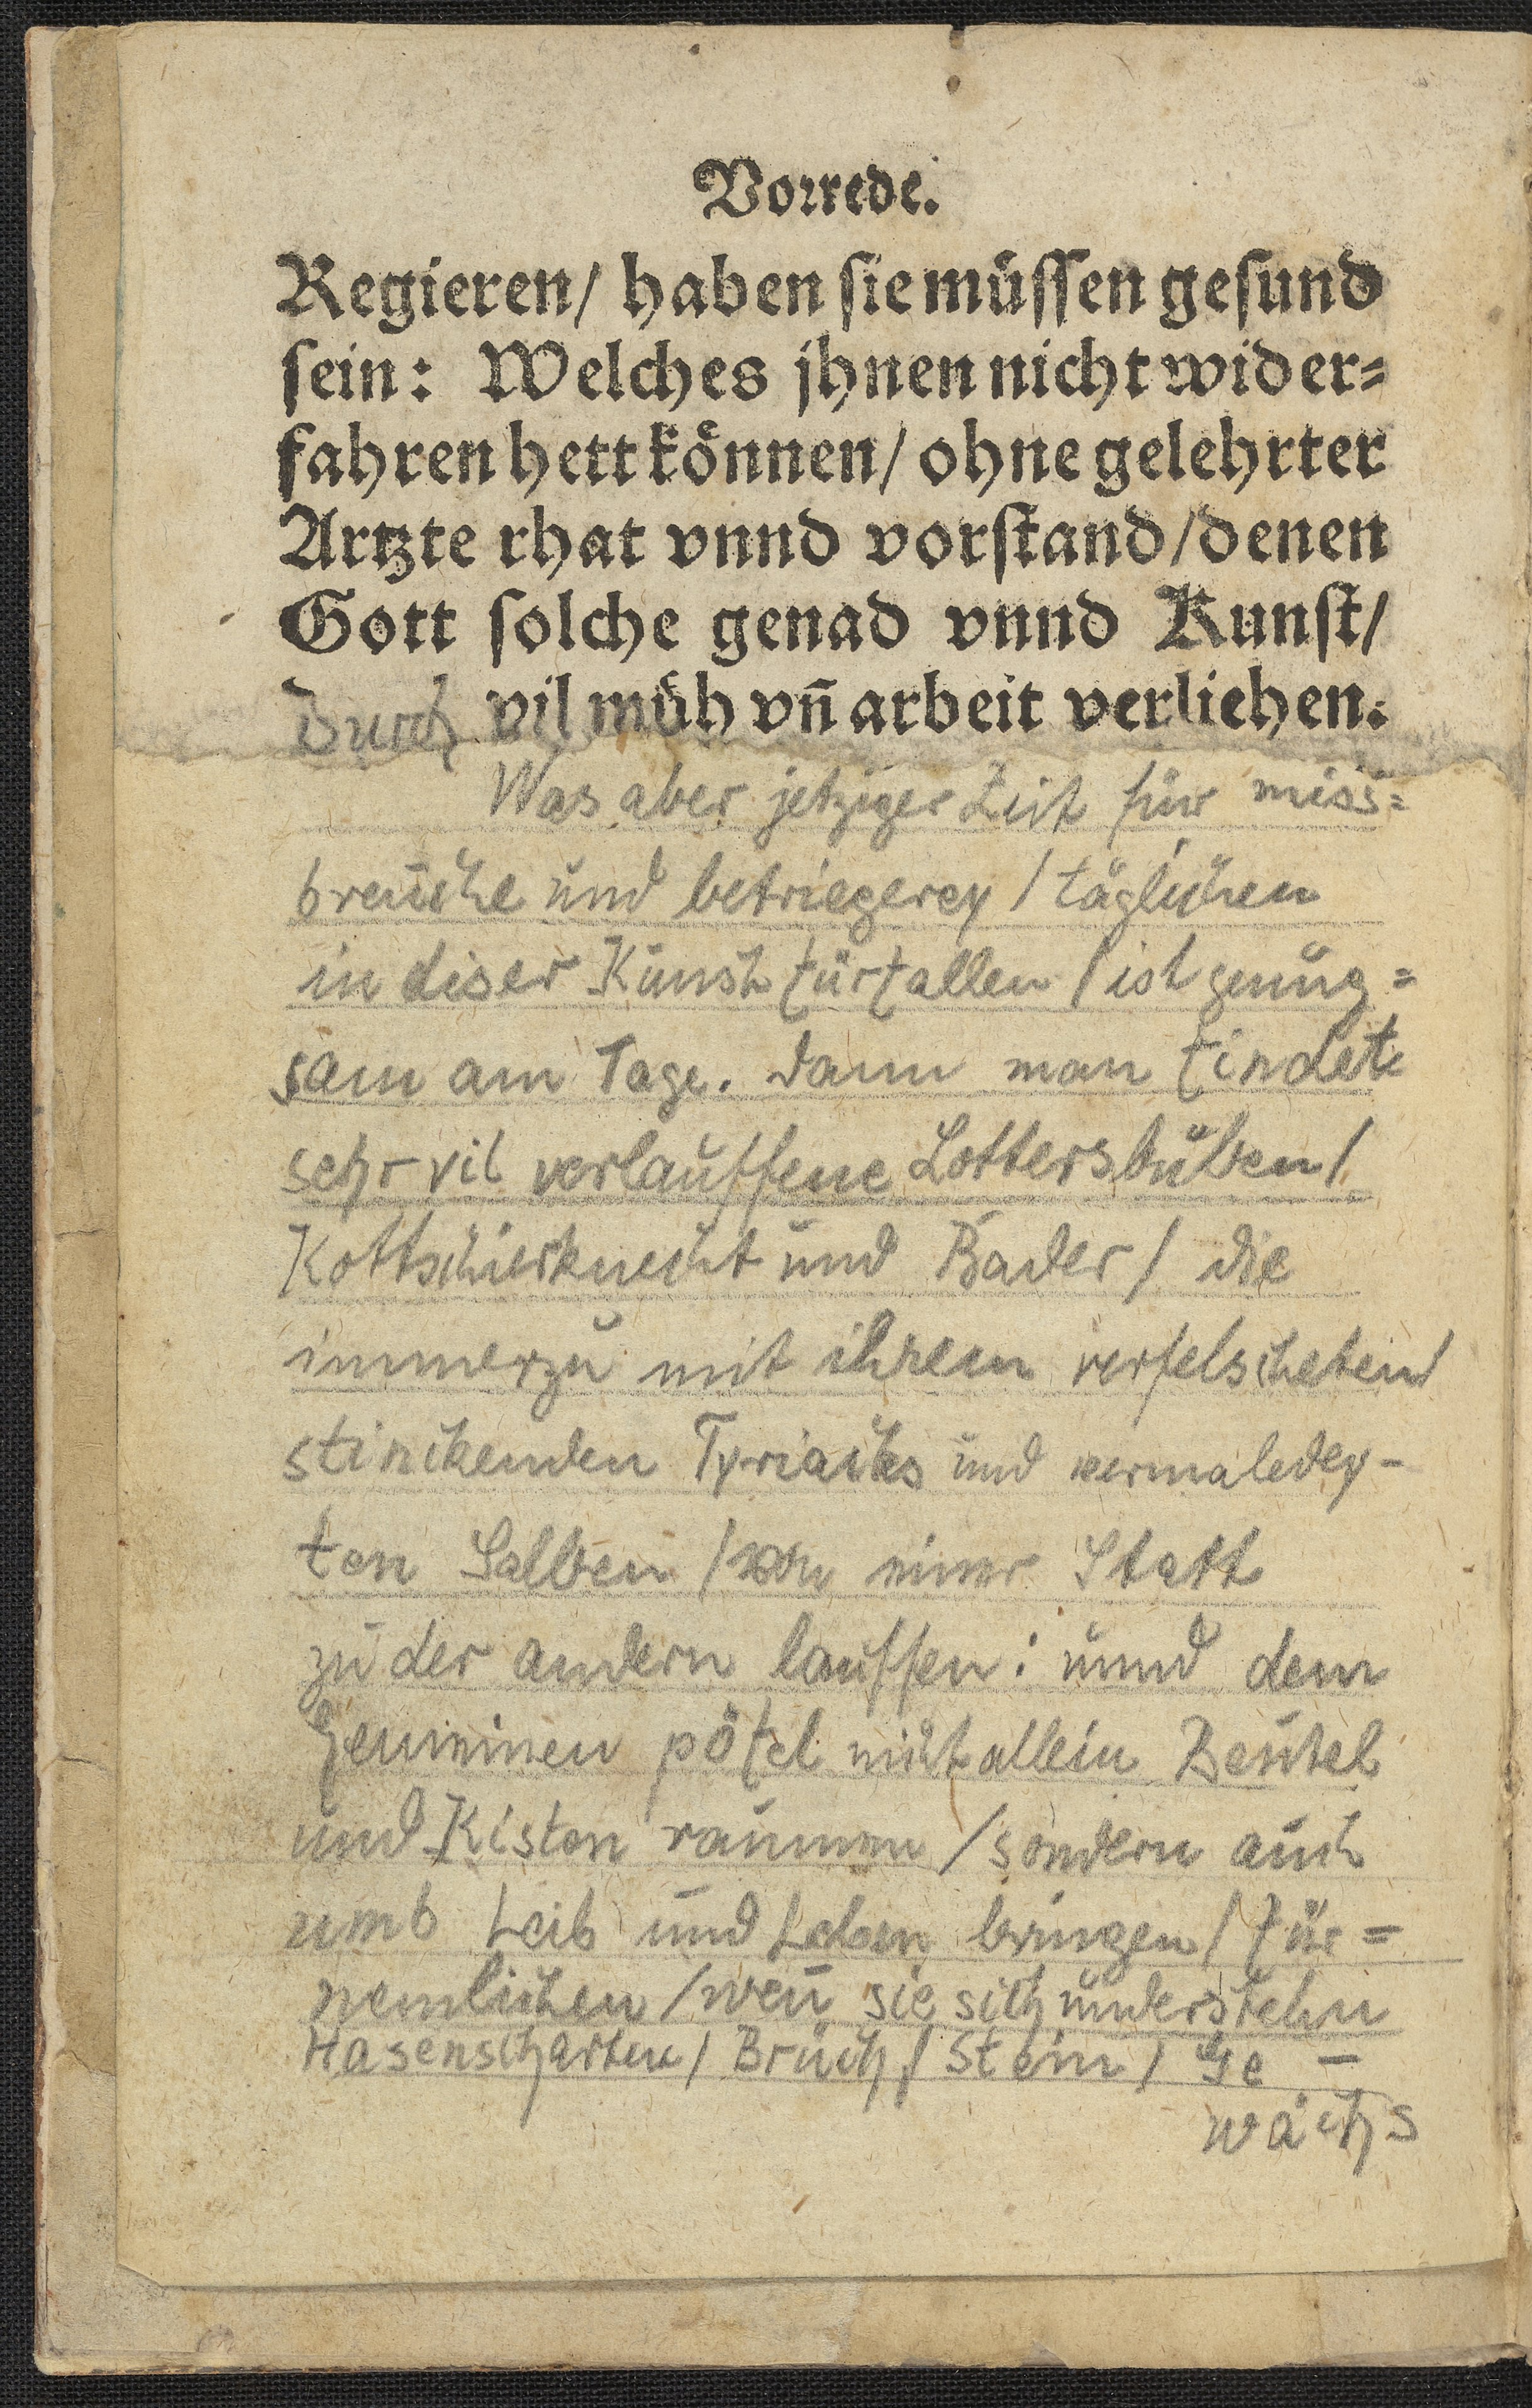 Vorrede.
Regieren/ haben sie müssen gesund
sein: Welches jhnen nicht wider=
fahren hett können/ ohne gelehrter
Artzte rhat vnnd vorstand/denen
Gott solche genad vnnd Kunst/
durch vil müh vn̄ arbeit verliehen.
Was aber jetziger Zeit für miss=
breüche und betriegerey / täglichen
in diser Kunst fürfallen / ist genug=
sam am Tage. dann man findet
sehr vil verlauffene Lottersbüben /
Kottschierknecht und Bader / die
immerzu mit ihrem verfelscheten /
stinckenden Tyriacks und vermaledey-
ten Salben / von einer Statt
zu der andern lauffen: unnd dem
Gemeinen pöfel nicht allein Beütel
und Kisten raumen / sondern auch
umb Leib und Leben bringen / für=
nemlichen / wen̄ sie sich understehn
Hasenscharten / Brüch / Stein / Ge-
wächs